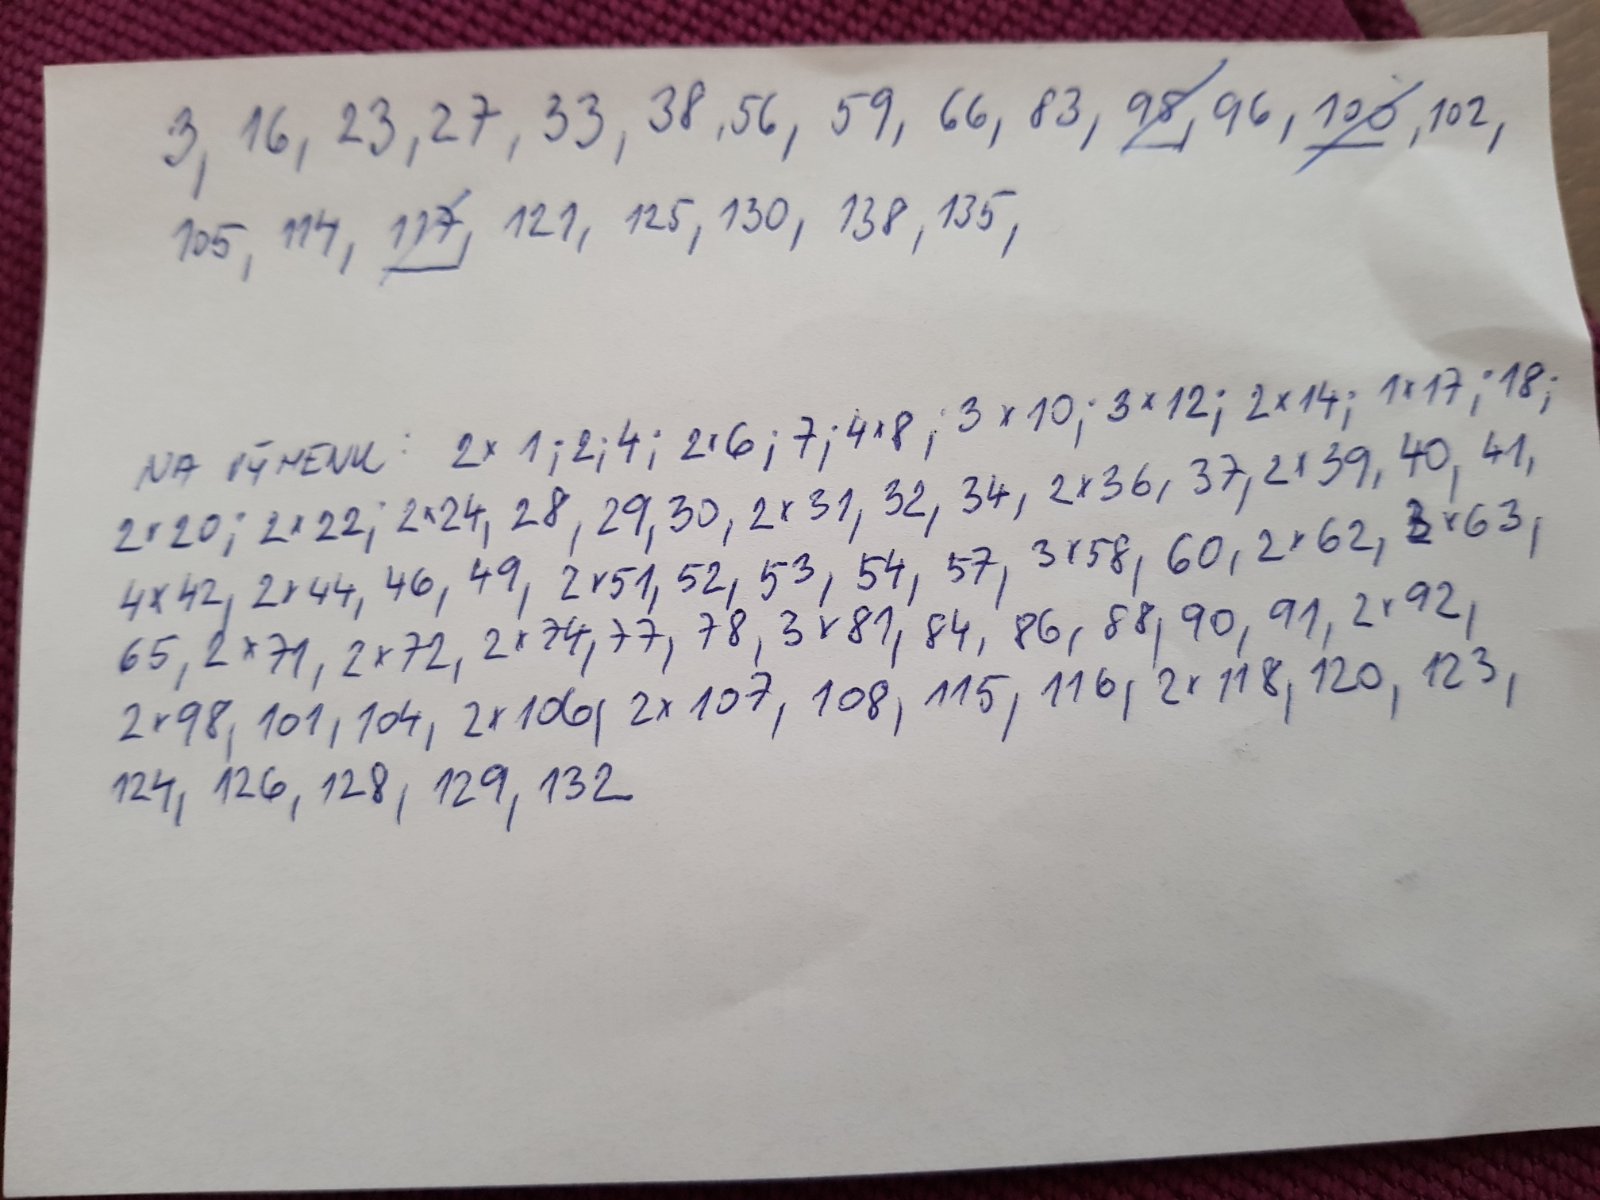 3, 16, 23, 27, 33, 38, 56, 59, 66, 83, 98, 96, 100, 102,
105, 114, 117, 121, 125, 130, 138, 135,
NA VÝMENU: 2x 1; 2; 4; 2x6; 7; 4x8; 3x10; 3x12; 2x14; 1x17; 18;
2x20; 2x22; 2x24, 28, 29, 30, 2x31, 32, 34, 2x36, 37, 2x39, 40, 41,
4x42, 2x44, 46, 49, 2x51, 52, 53, 54, 57, 3x58, 60, 2x62, 3x63,
65, 2x71, 2x72, 2x74, 77, 78, 3x81, 84, 86, 88, 90, 91, 2x92,
2x98, 101, 104, 2x106, 2x107, 108, 115, 116, 2x118, 120, 123,
124, 126, 128, 129, 132